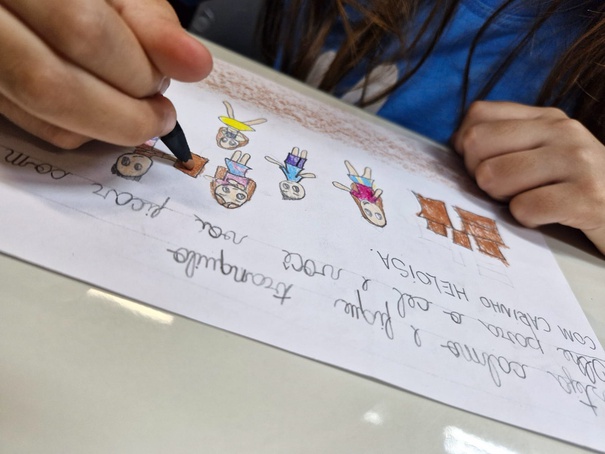 teja calmo e fique tranquilo
para o cel e você vai ficar com
COM CARINHO HELOISA.